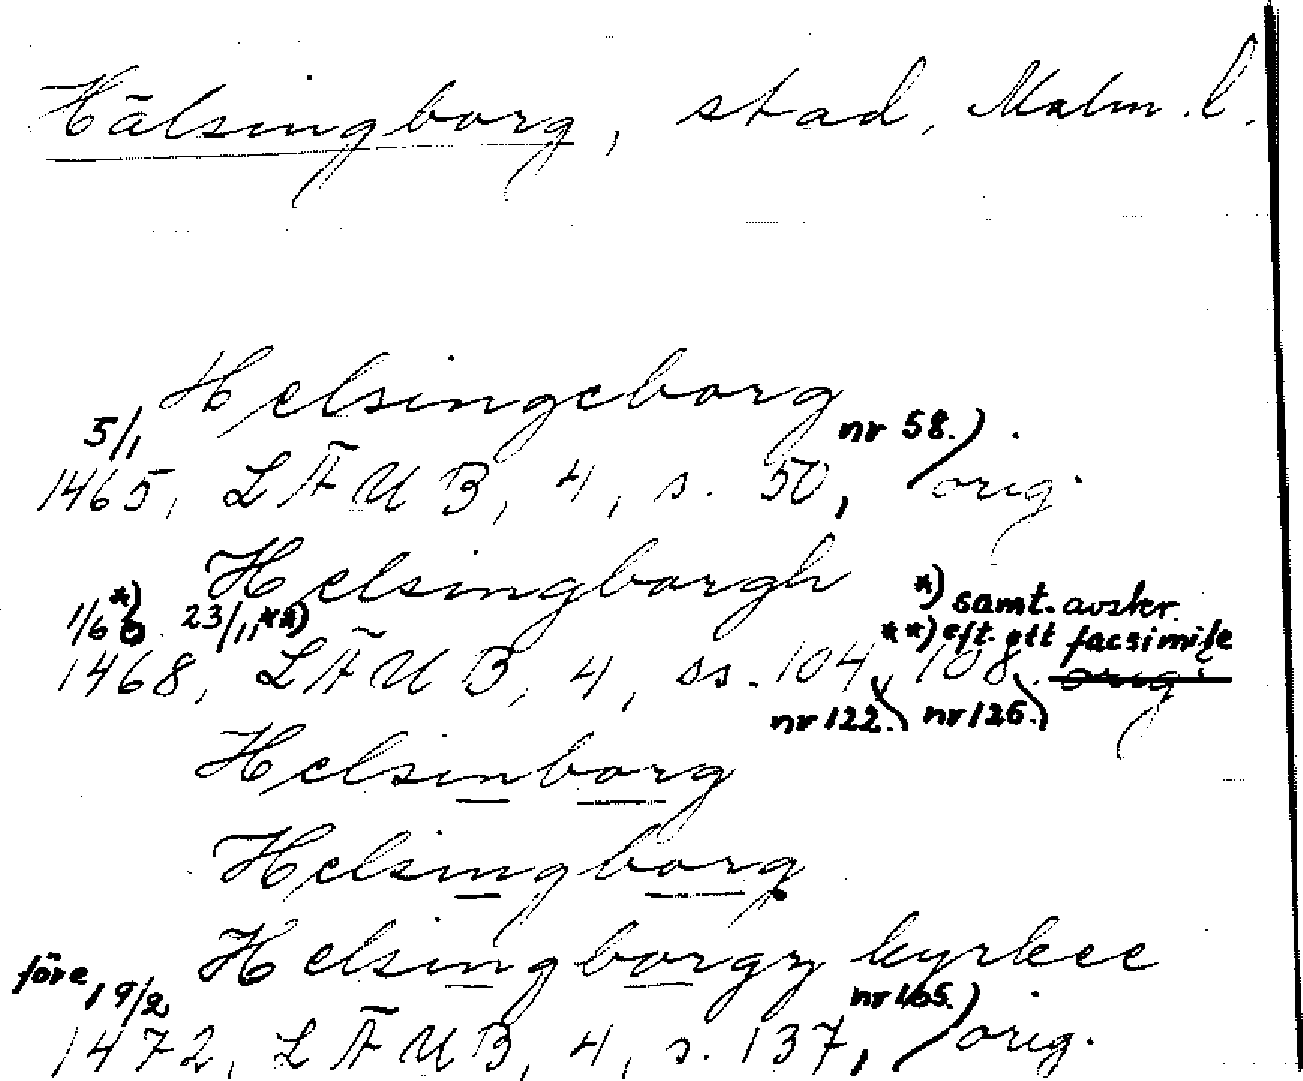 Hälsingborg, stad, Malm. l.
Helsingeborg
5/1 nr 58.)
1465, LÄUB, 4, s. 50, orig.
Helsingborgh
1/6 *) o 23/11 **) *) samt. avskr.
**) eft. ett facsimile
1468, LÄUB, 4, ss. 104, 108. orig.
nr 122.) nr 126.)
Helsinborg
Helsingborg
Helsingborgx kyrkee
före 19/2 nr 165.)
1472, LÄUB, 4, s. 137, orig.